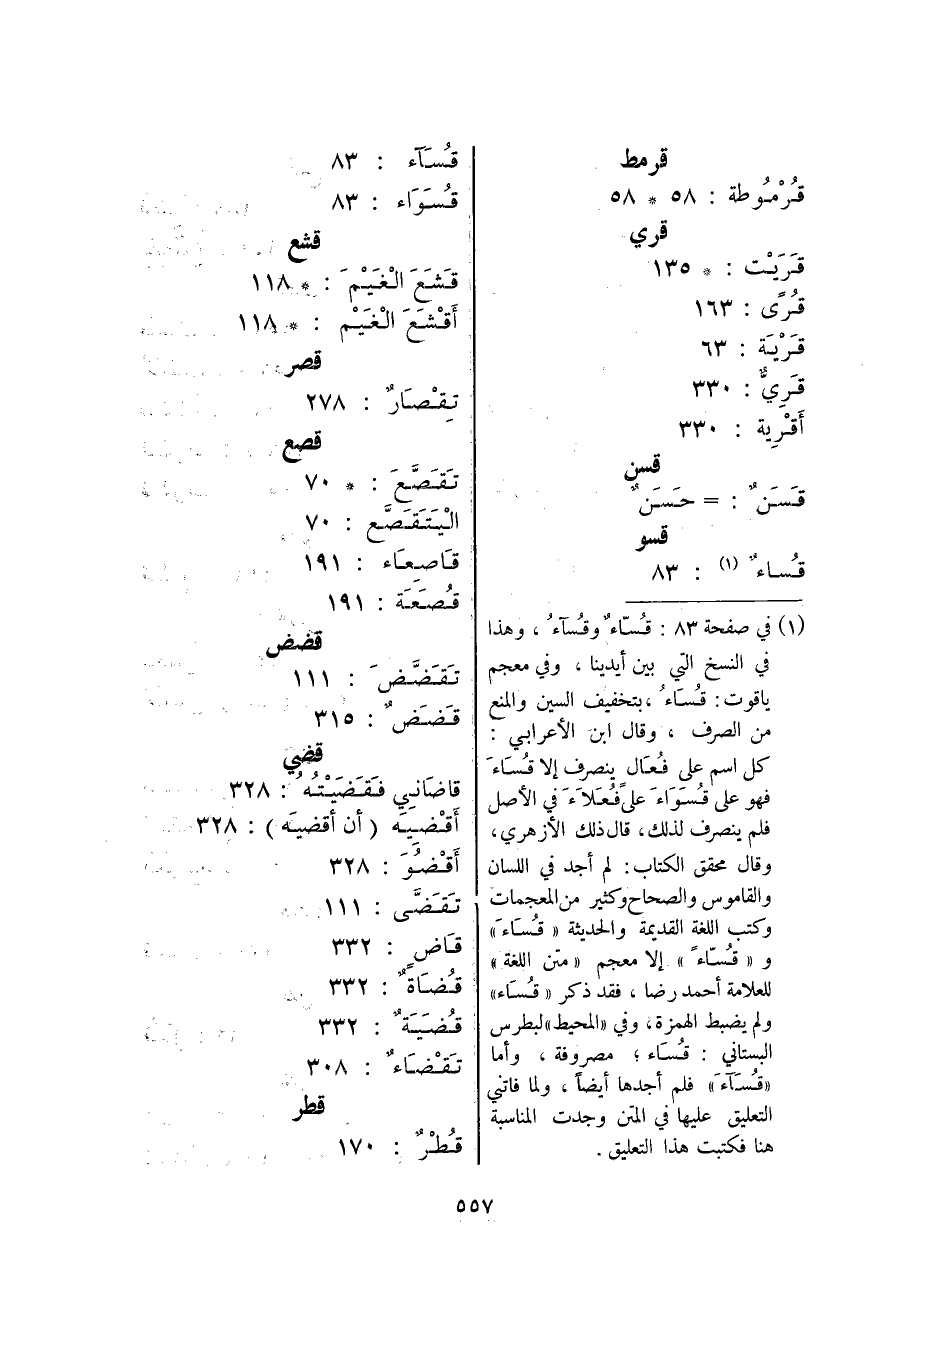 قرمط
قُرْمُوطة : ٥٨ * ٥٨
قري
قَرَيْت : * ١٣٥
قُرًى : ١٦٣
قَرْيَة : ٦٣
قَرِيٌّ : ٣٣٠
أَقْرِية : ٣٣٠
قسن
قَسَنٌ : = حَسَنٌ
قسو
قُساءٌ (١) : ٨٣
(١) في صفحة ٨٣ : قُسّاءٌ وقُسآءُ ، وهذا
في النسخ التي بين أيدينا ، وفي معجم
ياقوت : قُسَاءُ ، بتخفيف السين والمنع
من الصرف ، وقال ابن الأعرابي :
كل اسم على فُعَال ينصرف إلا قُسَاءَ
فهو على قُسَوَاءَ على فُعَلاَءَ في الأصل
فلم ينصرف لذلك ، قال ذلك الأزهري ،
وقال محقق الكتاب : لم أجد في اللسان
والقاموس والصحاح وكثير من المعجمات
وكتب اللغة القديمة والحديثة « قُسَاءَ »
و « قُسّاءً » إلا معجم « متن اللغة »
للعلامة أحمد رضا ، فقد ذكر « قُسَاء »
ولم يضبط الهمزة ، وفي « المحيط » لبطرس
البستاني : قُسَاء ؛ مصروفة ، وأما
« قُسَآءَ » فلم أجدها أيضاً ، ولما فاتني
التعليق عليها في المتن وجدت المناسبة
هنا فكتبت هذا التعليق .
قُسَآء : ٨٣
قُسَوَاء : ٨٣
قشع
قَشَعَ الْغَيْمَ : * ١١٨
أَقْشَعَ الْغَيْم : * ١١٨
قصر
تِقْصَارٌ : ٢٧٨
قصع
تَقَصَّعَ : * ٧٠
الْيَتَقَصَّع : ٧٠
قَاصِعَاء : ١٩١
قُصَعَة : ١٩١
قضض
تَقَضَّضَ : ١١١
قَضَضٌ : ٣١٥
قضي
قاضَانِي فَقَضَيْتُهُ : ٣٢٨
أَقْضِيَه ( أن أقضيَه ) : ٣٢٨
أَقْضُوَ : ٣٢٨
تَقَضَّى : ١١١
قَاضٍ : ٣٣٢
قُضَاةٌ : ٣٣٢
قُضَيَةٌ : ٣٣٢
تَقْضَاءٌ : ٣٠٨
قطر
قُطْرٌ : ١٧٠
٥٥٧